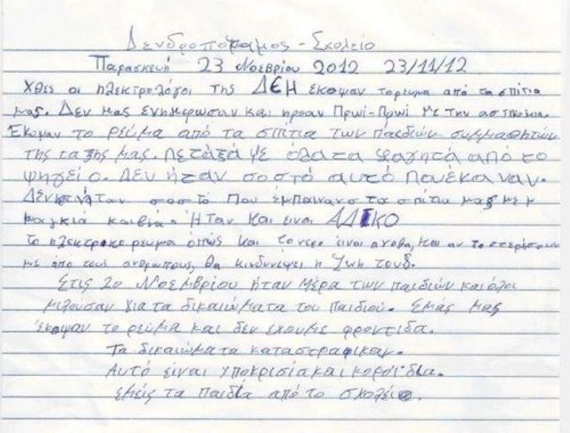 Δενδροπόταμος - Σχολείο
Παρασκευή 23 Νοεβρίου 2012 23/11/12
Χθες οι ηλεκτρολόγοι της ΔΕΗ έκοψαν το ρευμα από τα σπίτια
μας. Δεν μας ενημερωσαν και ηρθαν Πρωί-Πρωί με την αστυνομια.
Έκοψαν το ρεύμα από τα σπίτια των παιδιών συμμαθητών
της ταξης μας. Πετάξαμε όλα τα φαγητά από το
ψηγείο. Δεν ήταν σοστό αυτό που έκαναν.
Δεν ήταν σοστό που έμπαιναν στα σπίτια μας με
μαγκιά και βία. Ήταν και είναι ΑΔΙΚΟ
Το ηλεκτρικο ρευμα όπως και το νερο είναι αγαθα, και αν το στερήσουμε
με από τους ανθρωπους, θα κινδυνεψει η ζωη τους.
Στις 20 Νοεμβρίου ήταν μέρα των παιδιών και όλοι
μιλουσαν για τα δικαιώματα του παιδιού. Εμάς μας
έκοψαν το ρεύμα και δεν έχουμε φροντιδα.
Τα δικαιώματα καταστραφικαν.
Αυτό είναι υποκρισία και κοροιδια.
εμείς τα παιδιά από το σχολείο.